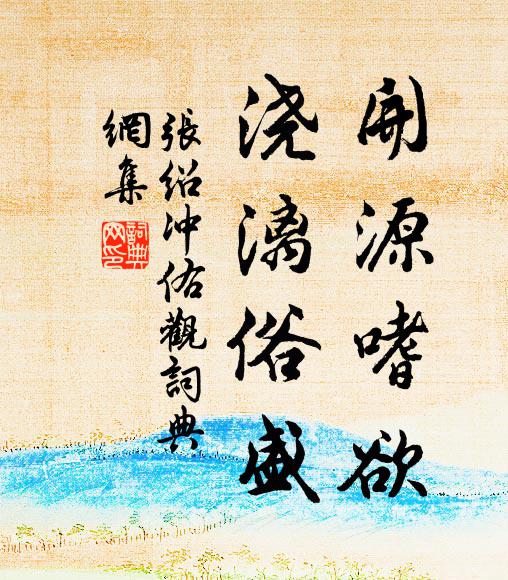 開源嗜欲
浇漓俗盛
張绍冲佑觀詞典
網集
詞典
网印